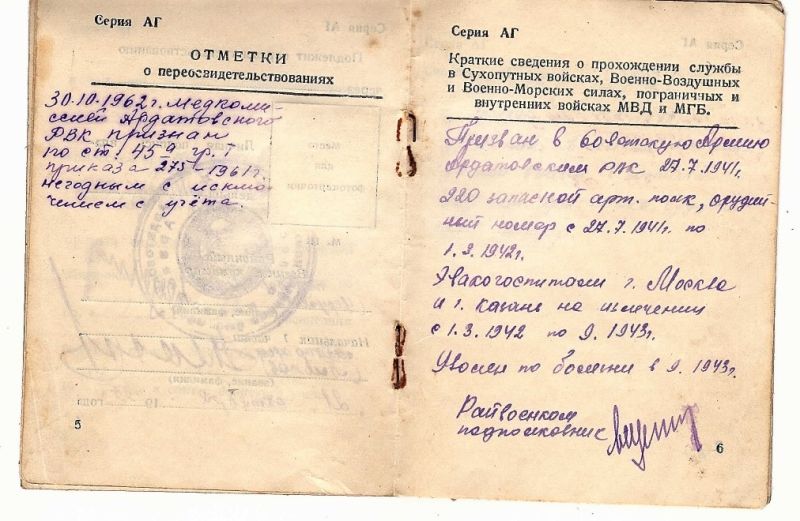 Серия АГ
ОТМЕТКИ
о переосвидетельствованиях
30.10.1962 г. медкоми-
ссией Ардатовского
РВК признан
по ст. 45а гр. I
приказа 275-1961 г.
негодным с исклю-
чением с учёта.
5
Серия АГ
Краткие сведения о прохождении службы
в Сухопутных войсках, Военно-Воздушных
и Военно-Морских силах, пограничных и
внутренних войсках МВД и МГБ.
Призван в Советскую Армию
Ардатовским РВК 27.7.1941г.
220 запасной арт. полк, орудий-
ный номер с 27.7.1941г. по
1.3.1942г.
г. Москва
и г. Казань на излечении
с 1.3.1942 по 9.1943г.
Уволен по болезни в 9.1943г.
Райвоенком
подполковник
6